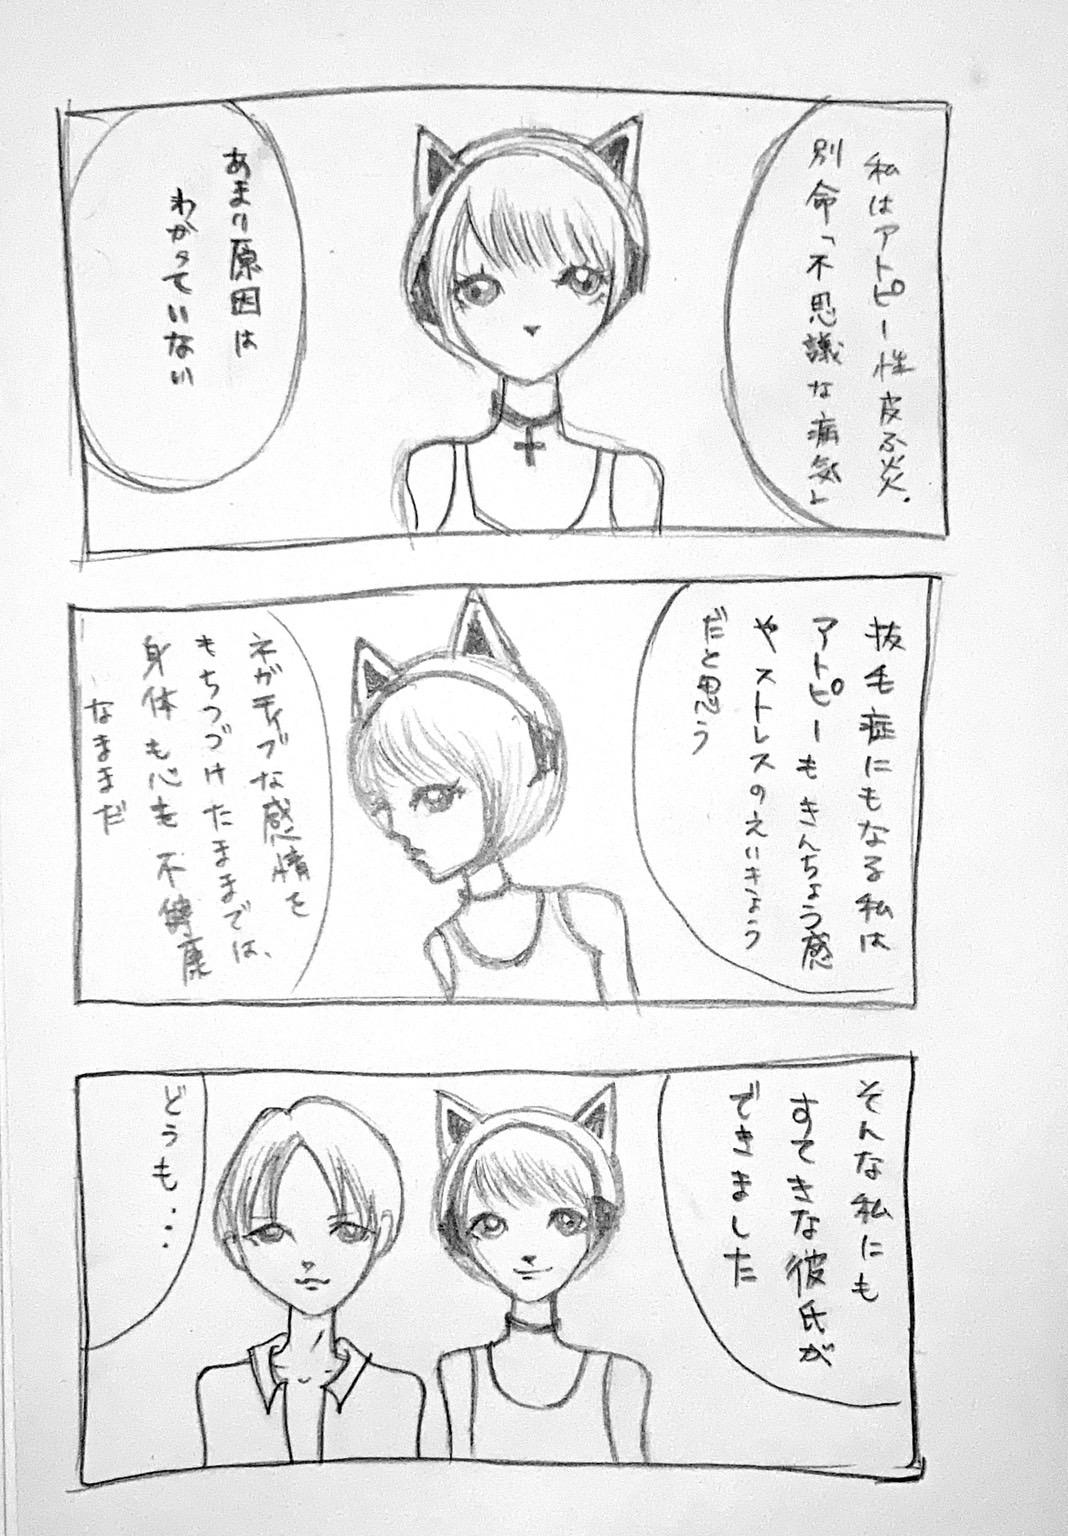 私はアトピー性皮ふ炎.
別命「不思議な病気」
あまり原因は
わかっていない
抜毛症にもなる私は
アトピーもきんちょう感
やストレスのえいきょう
だと思う
ネガティブな感情を
もちつづけたままでは、
身体も心も不健康
なままだ
そんな私にも
すてきな彼氏が
できました
どうも...